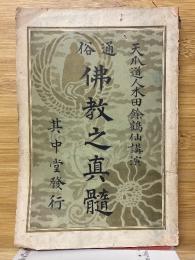 天爪道人水田餘鶴仙講演
通俗
佛教之真髓
其中堂發行